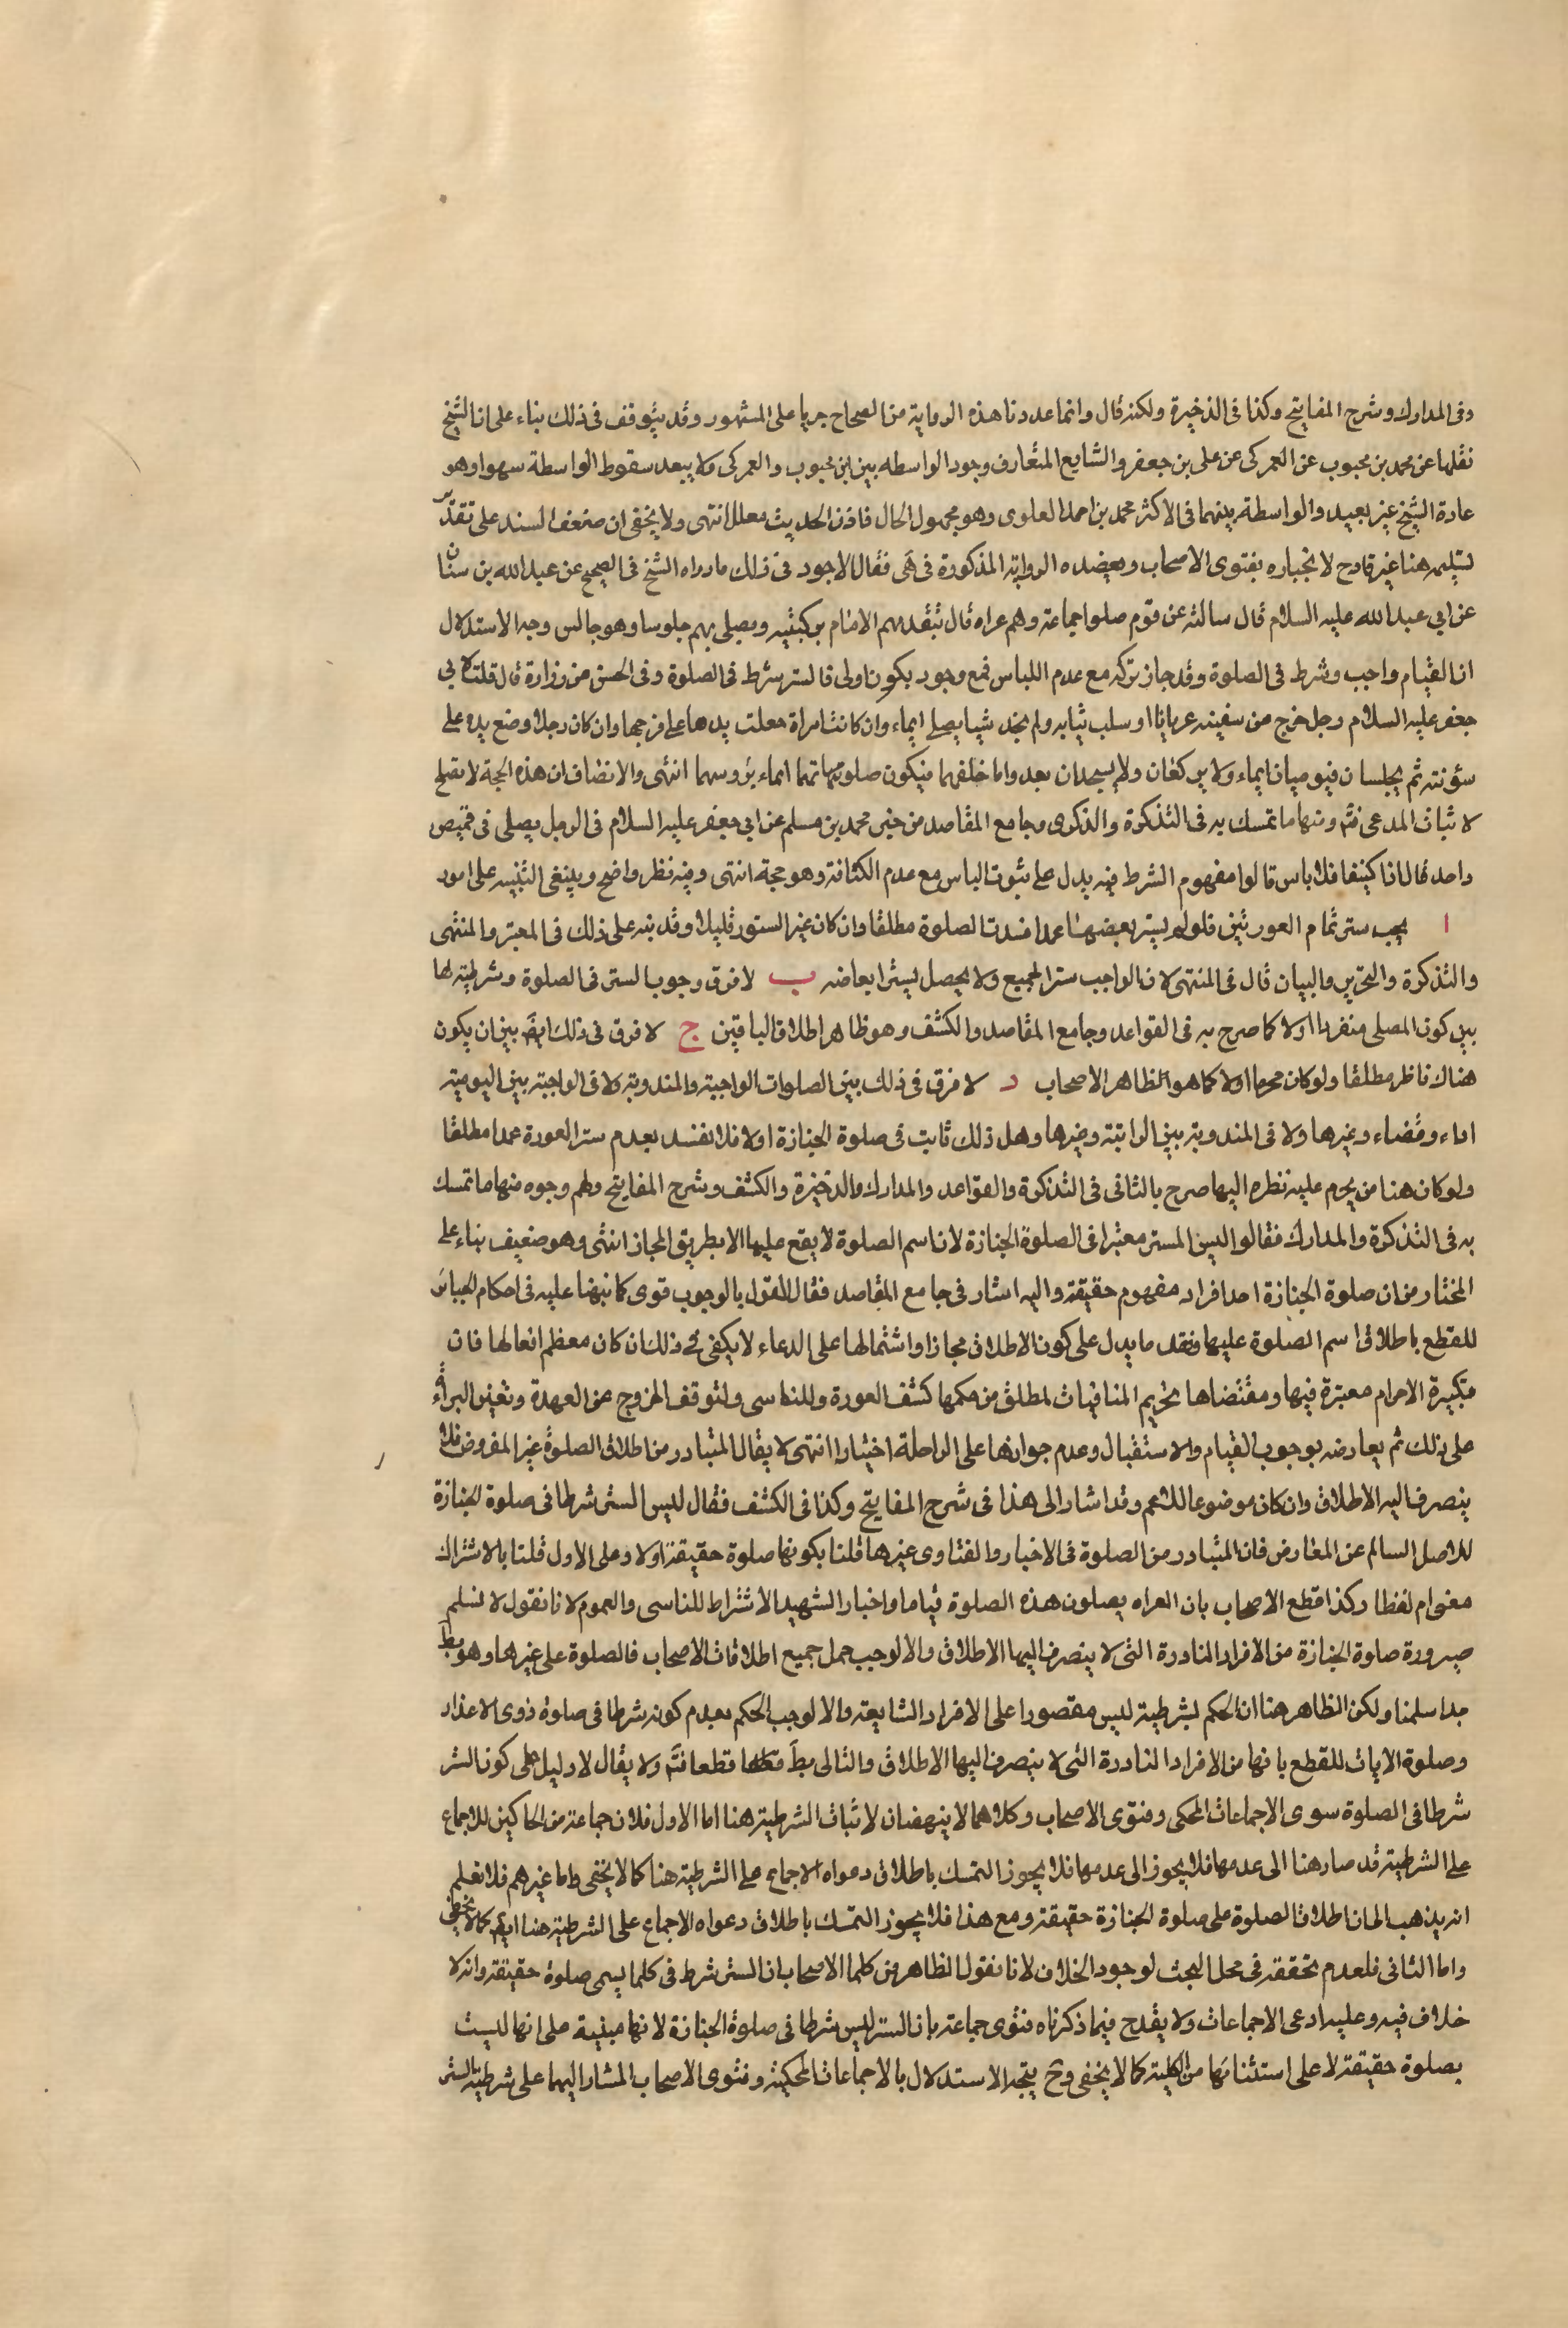 وفى المدارك وشرح المفاتيح وكذا فى الذخيرة ولكنه قال وانما عددنا هذه الرواية من الصحاح جريا على المشهور وقد يتوقف فى ذلك بناء على ان الشيخ
نقلها عن محمد بن محبوب عن العمركى عن على بن جعفر والشايع المتعارف وجود الواسطه بين ابن محبوب والعمركى ولا يبعد سقوط الواسطة سهوا وهو
عادة الشيخ غير بعيد والواسطة بينهما فى الاكثر محمد بن احمد العلوى وهو مجهول الحال فاذن الحديث معلل انتهى ولا يخفى ان ضعف السند على تقدير
تسليمه هنا غير قادح لانجباره بفتوى الاصحاب ويعضده الرواية المذكورة فى هَى فقال الاجود فى ذلك ما رواه الشيخ فى الصحيح عن عبد الله بن سنان
عن ابي عبد الله عليه السلام قال سالته عن قوم صلوا جماعة وهم عراه قال يتقدمهم الامام بركبتيه ويصلى بهم جلوسا وهو جالس وجه الاستدلال
ان القيام واجب وشرط فى الصلوة وقد جاز تركه مع عدم اللباس فمع وجود يكون اولى فالستر شرط فى الصلوة وفى الحسن من زرارة قال قلت لابي
جعفر عليه السلام رجل خرج من سفينه عريانا او سلب ثيابه ولم يجد شيئا يصلى ايماء وان كانت امراة جعلت يدها على فرجها وان كان رجلا وضع يده على
سؤته ثم يجلسان فيوميان ايماء ولا يركعان ولا يسجدان يبدوا ما خلفهما فيكون صلوتهما ايماء برؤسهما انتهى والانصاف ان هذه الحجة لا تصلح
لاثبات المدعى فتَه ومنها ما تمسك به فى التذكرة والذكرى وجامع المقاصد من خبر محمد بن مسلم عن ابي جعفر عليه السلام فى الرجل يصلى فى قميص
واحد قال اذا كان كثيفا فلا باس قالوا مفهوم الشرط فيه يدل على ثبوت الباس مع عدم الكثافة وهو حجة انتهى وفيه نظر واضح وينبغى التنبيه على امور
ا يجب ستر تمام العورتين فلو لم يستر بعضهما عمدا فسدت الصلوة مطلقا وان كان غير الستور قليلا وقد نبه على ذلك فى المعتبر والمنتهى
والتذكرة والتحرير والبيان قال فى المنتهى لان الواجب ستر الجميع ولا يحصل بستر ابعاضه ب لا فرق وجوب الستر فى الصلوة وشرطيته لها
بين كون المصلى منفردا اولا كما صرح به فى القواعد وجامع المقاصد والكشف وهو ظاهر اطلاق الباقين ج لا فرق فى ذلك ايضَ بين ان يكون
هناك ناظر مطلقا ولو كان محرما اولا كما هو الظاهر الاصحاب د لا فرق فى ذلك بين الصلوات الواجبة والمندوبة ولا فى الواجبة بين اليومية
اداء وقضاء وغيرها ولا فى المندوبة بين الراتبة وغيرها وهل ذلك ثابت فى صلوة الجنازة اولا فلا تفسد بعدم ستر العورة عمدا مطلقا
ولو كان هنا من يحرم عليه نظره اليها صرح بالثانى فى التذكرة والقواعد والمدارك والذخيرة والكشف وشرح المفاتيح ولهم وجوه منها ما تمسك
به فى التذكرة والمدارك فقالوا ليس المستر معتبرا فى الصلوة الجنازة لان اسم الصلوة لا يقع عليها الا بطريق المجاز انتهى وهو ضعيف بناء على
المختار من ان صلوة الجنازة احد افراد مفهوم حقيقة واليه اشار فى جامع المقاصد فقال القول بالوجوب قوى كما نبهنا عليه فى احكام الجبائر
للقطع باطلاق اسم الصلوة عليها وفقد ما يدل على كون الاطلاق مجازا واشتمالها على الدعاء لا يكفى فى ذلك ان كان معظم افعالها فان
تكبيرة الاحرام معتبرة فيها ومقتضاها تحريم المنافيات لمطلق من حكمها كشف العورة وللتاسى ولتوقف الخروج عن العهدة وتعين البرائة
على ذلك ثم يعارضه بوجوب القيام والاستقبال وعدم جوازها على الراحلة اختيارا انتهى لا يقال المتبادر من اطلاق الصلوة غير المفروض فلا
ينصرف اليه الاطلاق وان كان موضوعا للاعم وقد اشار الى هذا فى شرح المفاتيح وكذا فى الكشف فقال ليس الستر شرطا فى صلوة الجنازة
للاصل السالم عن المعارض فان المتبادر من الصلوة فى الاخبار والفتاوى غيرها قلنا بكونها صلوة حقيقة اولا وعلى الاول قلنا بالاشتراك
معنى ام لفظا وكذا قطع الاصحاب بان العراه يصلون هذه الصلوة قياما واخبار الشهيد الاشتراط للتاسى والعموم لانا نقول لا نسلم
صيرورة صلوة الجنازة من الافراد النادرة التى لا ينصرف اليها الاطلاق والا لوجب حمل جميع اطلاقات الاصحاب فى الصلوة على غيرها وهو بطَ
جدا سلمنا ولكن الظاهر هنا ان الحكم لشرطية ليس مقصورا على الافراد الشايعة والا لوجب الحكم بعدم كونه شرطا فى صلوة ذوى الاعذار
وصلوة الايات للقطع بانها من الافراد النادرة التى لا ينصرف اليها الاطلاق والتالى بطَ قطعا فتَه ولا يقال لا دليل على كون الستر
شرطا فى الصلوة سوى الاجماعات المحكى وفتوى الاصحاب وكلاهما لا ينهضان لاثبات الشرطية هنا اما الاول فلان جماعة من الحاكين للاجماع
على الشرطية قد صار هنا الى عدمها فلا يجوز الى عدمها فلا يجوز التمسك باطلاق دعواه الاجماع على الشرطية هنا كما لا يخفى واما غيرهم فلا نعلم
انه يذهب الى ان اطلاق الصلوة على صلوة الجنازة حقيقة ومع هذا فلا يجوز التمسك باطلاق دعواه الاجماع على الشرطية هنا ايضَ كما لا يخفى
واما الثانى فلعدم تحققه فى محل البحث لوجود الخلاف لانا نقول الظاهر من كلما الاصحاب ان الستر شرط فى كلما يسمى صلوة حقيقة وانه لا
خلاف فيه وعليه ادعى الاجماعات ولا يقدح فيما ذكرناه فتوى جماعة بان الستر ليس شرطا فى صلوة الجنازة لانها مبنية على انها ليست
بصلوة حقيقة لا على استثنائها من الكلية كما لا يخفى وحَ يتجه الاستدلال بالاجماعات المحكية وفتوى الاصحاب المشار اليهما على شرطية الستر